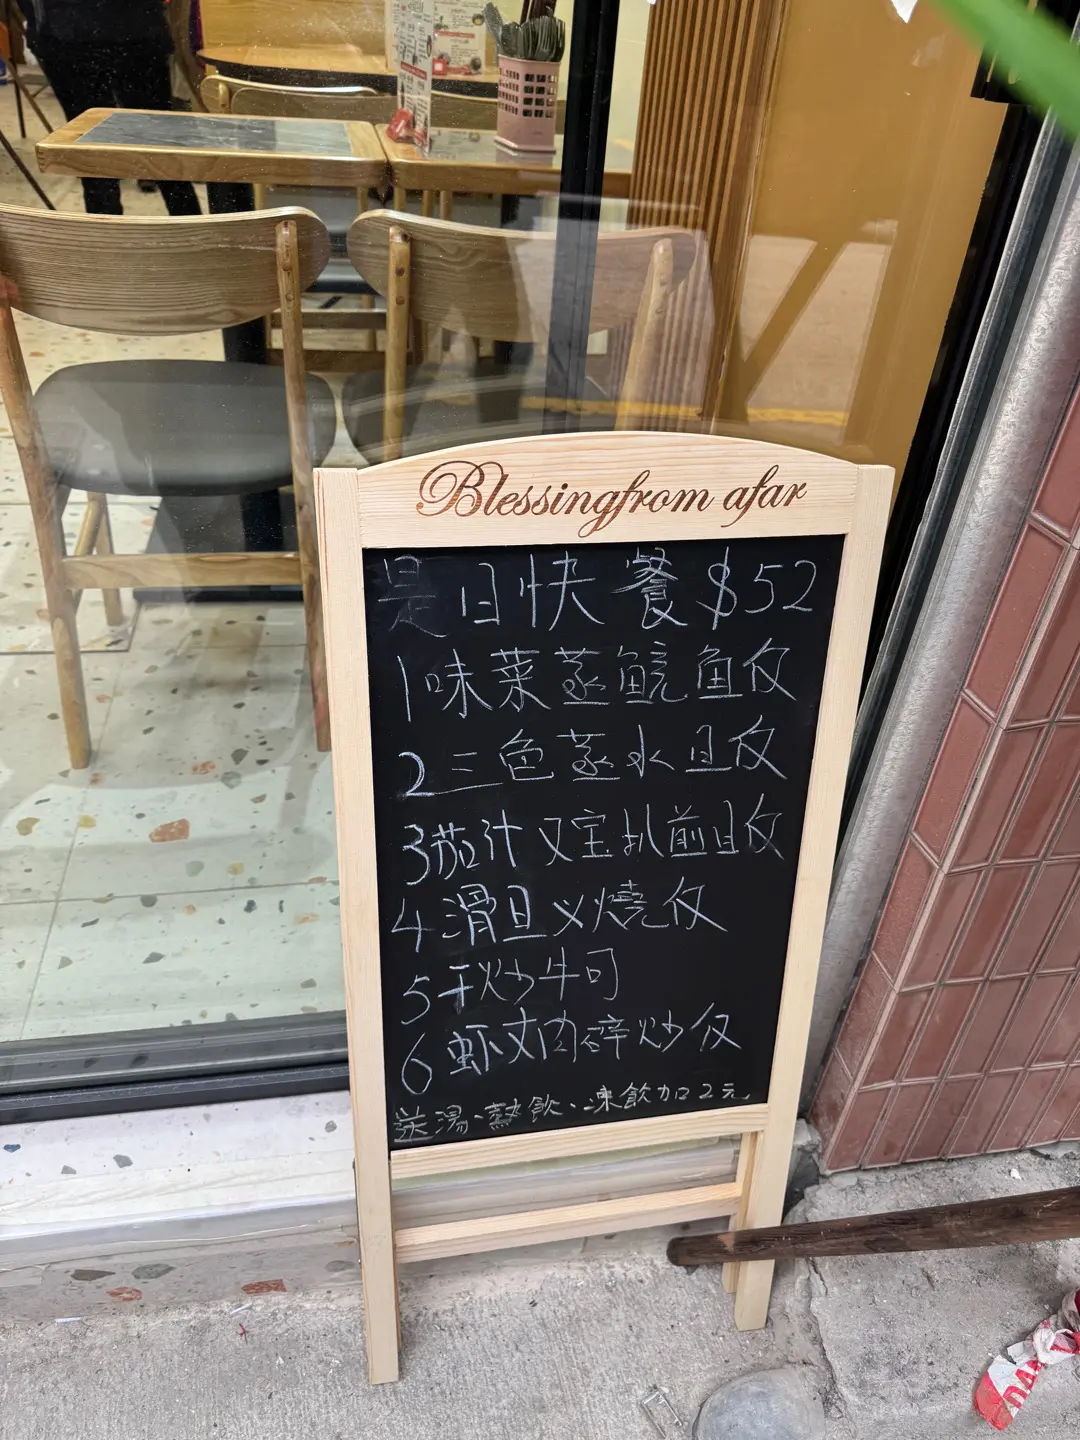 Blessingfrom afar
是日快餐$52
1味菜蒸鯇鱼仮
2三色蒸水旦仮
3茄汁叉宝扒煎旦仮
4滑旦乂燒仮
5干炒牛司
6虾丈肉碎炒仮
送湯、熱飲、凍飲加2元